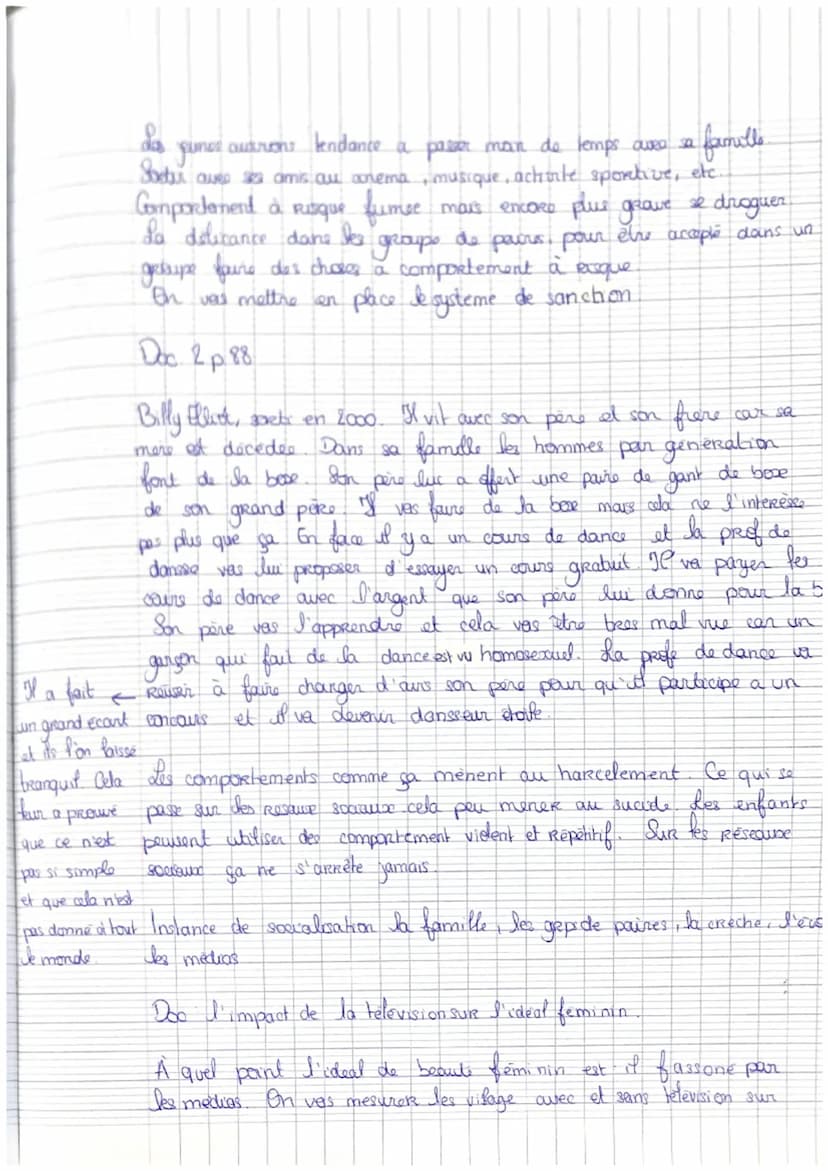 Les jeunes auerons tendance a passer moin de temps avec sa famille.
Sortir avec ses amis au cinema, musique, activité sportive, etc.
Comportement à risque fumée mais encore plus grave se droguer
La délicance dans les groupe de pairs, pour être accepté dans un
groupe faire des choses a comportement à risque.
On vas mettre en place le systeme de sanction
Doc 2 p 88
Billy Elliot, sortir en 2000. Il vit avec son père et son frere car sa
mere est décedée. Dans sa famille les hommes par géneration
font de la boxe. Son père luc a offert une paire de gant de boxe
de son grand père. Il vas faire de la boxe mais cela ne l'interèsse
pas plus que ça. En face il y a un cours de dance et la prof de
dansse vas lui proposer d'essayer un cours gratuit. Il va payer les
cours de dance avec l'argent que son père lui donne pour la b
Son père vas l'apprendre et cela vas être tres mal vue car un
garçon qui fait de la dance est vu homosexuel. La profe de dance va
Reusir à faire changer d'avis son père pour qu'il participe a un
concours et il va devenir dansseur étoile.
Il a fait ←
un grand ecart
et ils l'on laissé
tranquil. Cela
leur a prouvé
que ce n'est
pas si simple
et que cela n'est
pas donné à tout
le monde.
Les comportements comme ça mènent au harcelement. Ce qui se
passe sur les reseaux sociaux cela peu mener au sucide. Les enfants
peuvent utiliser des comportement violent et Répétitif. Sur les Réseaux
sociaux ça ne s'arrête jamais.
Instance de socialisation la famille, les gep de paires, la crèche, l'eco
les médias
Doc l'impact de la télévision sur l'idéal feminin.
À quel point l'ideal de beauté féminin est-il fassoné par
les médias. On vas mesurer les village avec et sans télévision sur